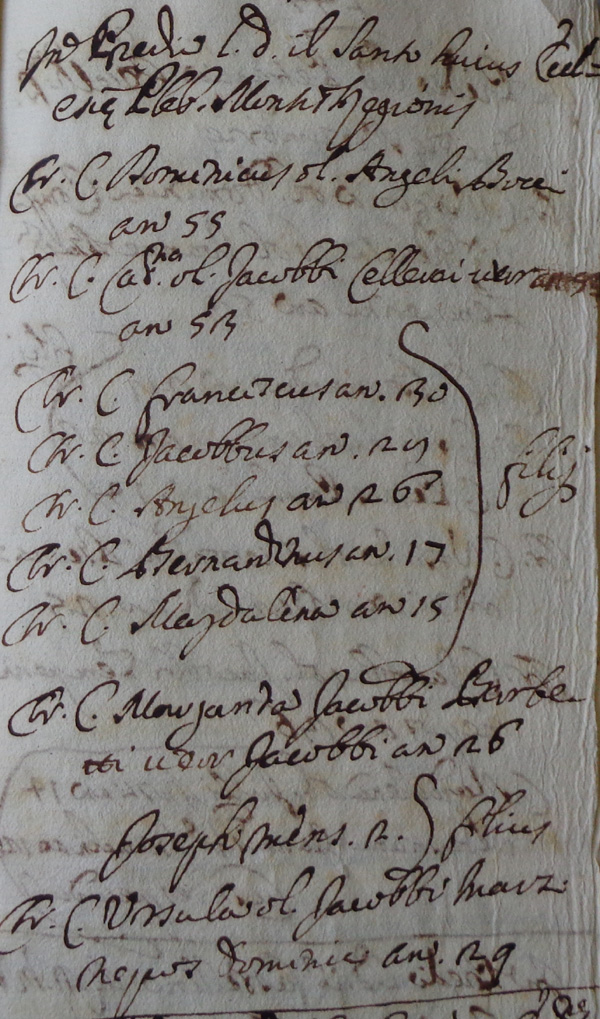 In Predio l. d. il Santo huius Eccl=
esię Pleb. Montis Regionis
Cr. C. Dominicus ol. Angeli Bocci
an 55
Cr. C. Cat.na ol. Jacobbi Cellerai uxor
an 53
Cr. C. Franciscus an. 30
Cr. C. Jacobbus an. 29
Cr. C. Angelus an 26
Cr. C. Bernardinus an. 17
Cr. C. Magdalena an 15
filij
Cr. C. Margarita Jacobbi Barbe-
tti uxor Jacobbi an 26
Joseph mens. 2. } filius
Cr. C. Ursula ol. Jacobbi
nepos Dominici an. 29